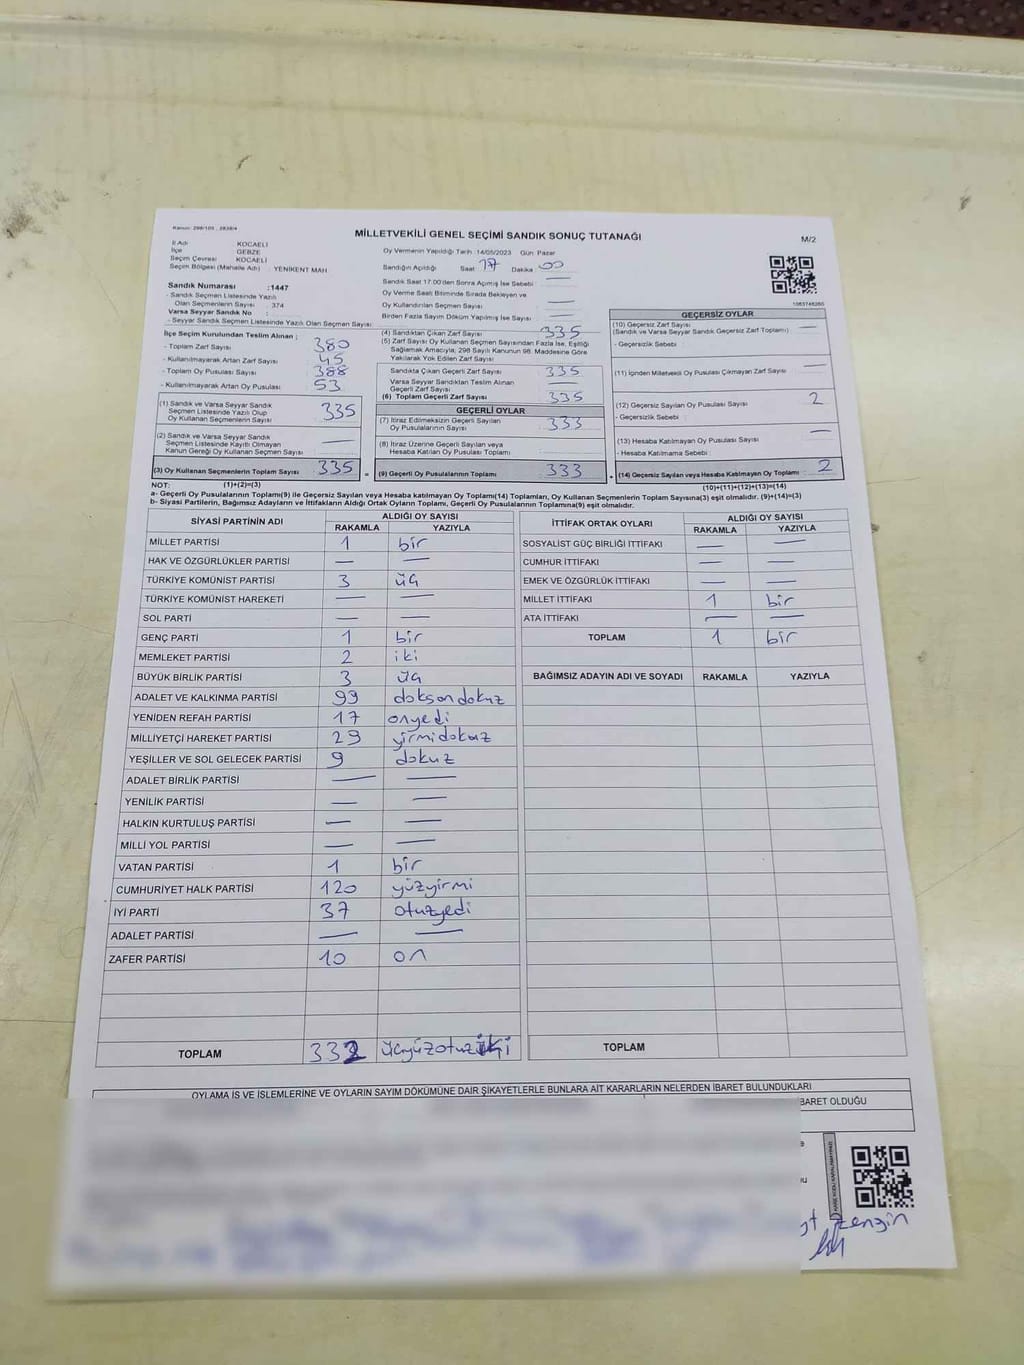 Kanun: 298/105 , 2839/4
MİLLETVEKİLİ GENEL SEÇİMİ SANDIK SONUÇ TUTANAĞI
M/2
İl Adı : KOCAELİ
İlçe : GEBZE
Seçim Çevresi : KOCAELİ
Seçim Bölgesi (Mahalle Adı) : YENİKENT MAH
Sandık Numarası :1447
- Sandık Seçmen Listesinde Yazılı
Olan Seçmenlerin Sayısı : 374
Varsa Seyyar Sandık No :
- Seyyar Sandık Seçmen Listesinde Yazılı Olan Seçmen Sayısı:
İlçe Seçim Kurulundan Teslim Alınan ;
- Toplam Zarf Sayısı : 380
- Kullanılmayarak Artan Zarf Sayısı : 45
- Toplam Oy Pusulası Sayısı : 388
- Kullanılmayarak Artan Oy Pusulası : 53
(1) Sandık ve Varsa Seyyar Sandık
Seçmen Listesinde Yazılı Olup
Oy Kullanan Seçmenlerin Sayısı : 335
(2) Sandık ve Varsa Seyyar Sandık
Seçmen Listesinde Kayıtlı Olmayan
Kanun Gereği Oy Kullanan Seçmen Sayısı : —
(3) Oy Kullanan Seçmenlerin Toplam Sayısı : 335
Oy Vermenin Yapıldığı Tarih :14/05/2023 Gün: Pazar
Sandığın Açıldığı Saat 17 Dakika 00
Sandık Saat 17.00'den Sonra Açılmış İse Sebebi : —
Oy Verme Saati Bitiminde Sırada Bekleyen ve
Oy Kullandırılan Seçmen Sayısı : —
Birden Fazla Sayım Döküm Yapılmış İse Sayısı : —
(4) Sandıktan Çıkan Zarf Sayısı : 335
(5) Zarf Sayısı Oy Kullanan Seçmen Sayısından Fazla İse, Eşitliği
Sağlamak Amacıyla, 298 Sayılı Kanunun 98. Maddesine Göre
Yakılarak Yok Edilen Zarf Sayısı
Sandıkta Çıkan Geçerli Zarf Sayısı : 335
Varsa Seyyar Sandıktan Teslim Alınan
Geçerli Zarf Sayısı : —
(6) Toplam Geçerli Zarf Sayısı : 335
GEÇERLİ OYLAR
(7) İtiraz Edilmeksizin Geçerli Sayılan
Oy Pusulalarının Sayısı : 333
(8) İtiraz Üzerine Geçerli Sayılan veya
Hesaba Katılan Oy Pusulası Toplamı : —
= (9) Geçerli Oy Pusulalarının Toplamı : 333
1083748260
GEÇERSİZ OYLAR
(10) Geçersiz Zarf Sayısı : —
(Sandık ve Varsa Seyyar Sandık Geçersiz Zarf Toplamı)
- Geçersizlik Sebebi :
(11) İçinden Milletvekili Oy Pusulası Çıkmayan Zarf Sayısı : —
(12) Geçersiz Sayılan Oy Pusulası Sayısı : 2
- Geçersizlik Sebebi :
(13) Hesaba Katılmayan Oy Pusulası Sayısı : —
- Hesaba Katılmama Sebebi :
+ (14) Geçersiz Sayılan veya Hesaba Katılmayan Oy Toplamı : 2
NOT: (1)+(2)=(3) (10)+(11)+(12)+(13)=(14)
a- Geçerli Oy Pusulalarının Toplamı(9) ile Geçersiz Sayılan veya Hesaba katılmayan Oy Toplamı(14) Toplamları, Oy Kullanan Seçmenlerin Toplam Sayısına(3) eşit olmalıdır. (9)+(14)=(3)
b- Siyasi Partilerin, Bağımsız Adayların ve İttifakların Aldığı Ortak Oyların Toplamı, Geçerli Oy Pusulalarının Toplamına(9) eşit olmalıdır.
SİYASİ PARTİNİN ADI ALDIĞI OY SAYISI
RAKAMLA YAZIYLA
MİLLET PARTİSİ 1 bir
HAK VE ÖZGÜRLÜKLER PARTİSİ — —
TÜRKİYE KOMÜNİST PARTİSİ 3 üç
TÜRKİYE KOMÜNİST HAREKETİ — —
SOL PARTİ — —
GENÇ PARTİ 1 bir
MEMLEKET PARTİSİ 2 iki
BÜYÜK BİRLİK PARTİSİ 3 üç
ADALET VE KALKINMA PARTİSİ 99 doksandokuz
YENİDEN REFAH PARTİSİ 17 onyedi
MİLLİYETÇİ HAREKET PARTİSİ 29 yirmidokuz
YEŞİLLER VE SOL GELECEK PARTİSİ 9 dokuz
ADALET BİRLİK PARTİSİ — —
YENİLİK PARTİSİ — —
HALKIN KURTULUŞ PARTİSİ — —
MİLLİ YOL PARTİSİ — —
VATAN PARTİSİ 1 bir
CUMHURİYET HALK PARTİSİ 120 yüzyirmi
İYİ PARTİ 37 otuzyedi
ADALET PARTİSİ — —
ZAFER PARTİSİ 10 on
TOPLAM 332 üçyüzotuziki
İTTİFAK ORTAK OYLARI ALDIĞI OY SAYISI
RAKAMLA YAZIYLA
SOSYALİST GÜÇ BİRLİĞİ İTTİFAKI — —
CUMHUR İTTİFAKI — —
EMEK VE ÖZGÜRLÜK İTTİFAKI — —
MİLLET İTTİFAKI 1 bir
ATA İTTİFAKI — —
TOPLAM 1 bir
BAĞIMSIZ ADAYIN ADI VE SOYADI RAKAMLA YAZIYLA
TOPLAM
OYLAMA İŞ VE İŞLEMLERİNE VE OYLARIN SAYIM DÖKÜMÜNE DAİR ŞİKAYETLERLE BUNLARA AİT KARARLARIN NELERDEN İBARET BULUNDUKLARI
BARET OLDUĞU
zengin